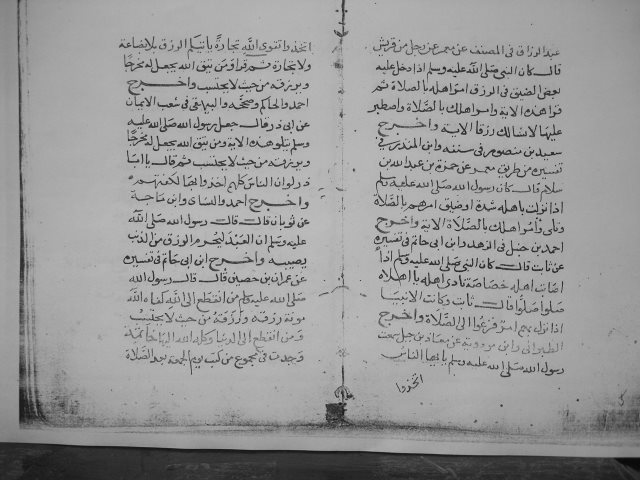 عبد الرزاق فى المصنف عن معمر عن رجل من قريش
قال كان النبى صلى الله عليه وسلم اذا دخل عليه
بعض الضيق فى الرزق امر اهله بالصلاة ثم
قرا هذه الاية وامر اهلك بالصلاة واصطبر
عليها لا نسالك رزقا الاية واخرج
سعيد بن منصور فى سننه وابن المنذر فى
تفسيره من طريق معمر عن حمزة بن عبد الله بن
سلام قال كان رسول الله صلى الله عليه وسلم
اذا نزلت باهله شدة او ضيق امرهم بالصلاة
وتلى وأمر اهلك بالصلاة الاية واخرج
احمد بن حنبل فى الزهد وابن ابى حاتم فى تفسيره
عن ثابت قال كان النبى صلى الله عليه وسلم اذا
اصابت اهله خصاصة نادى اهله يا اهلاه
صلوا صلوا قال ثابت وكانت الانبيا
اذا نزل بهم امر فزعوا الى الصلاة واخرج
الطبرانى وابن مردويه عن معاذ بن جبل سمعت
رسول الله صلى الله عليه وسلم يا ايها الناس
اتخذوا
اتخذوا تقوى الله تجارة يأتيكم الرزق بلا بضاعة
ولا تجارة ثم قرا ومن يتق الله يجعل له مخرجا
ويرزقه من حيث لا يحتسب واخرج
احمد والحاكم وصححه والبيهقى فى شعب الايمان
عن ابى ذر قال جعل رسول الله صلى الله عليه
وسلم يتلو هذه الاية ومن يتق الله يجعل له مخرجا
ويرزقه من حيث لا يحتسب ثم قال يا ابا
ذر لو ان الناس كلهم اخذوا بها لكفتهم
واخرج احمد والنساى وابن ماجة
عن ثوبان قال قال رسول الله صلى الله
عليه وسلم ان العبد ليحرم الرزق من الذنب
يصيبه واخرج ابن ابى حاتم فى تفسيره
عن عمران بن حصين قال قال رسول الله
صلى الله عليه وسلم من انقطع الى الله كفاه الله
مونة رزقه ورزقه من حيث لا يحتسب
ومن انقطع الى الدنيا وكله الله اليها
وجدت فى مجموع من كتب يوم الجمعة بعد الصلاة